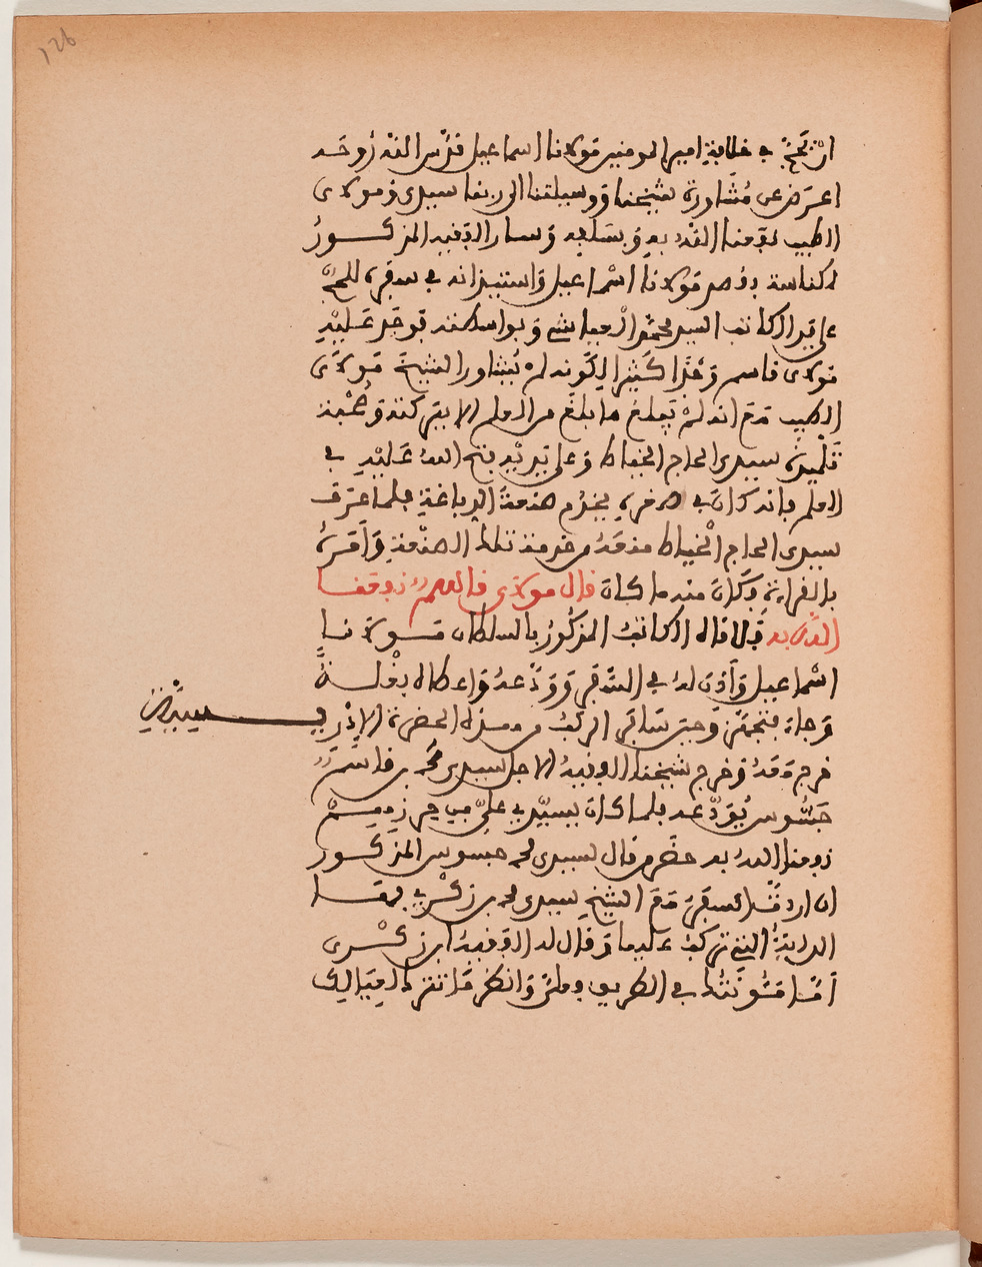 126
ان تحج في خلافة امير المومنين مولانا اسماعيل قدس الله روحه
اعرض عن مشاورة شيخنا ووسيلتنا الى ربنا سيدي ومولاي
الطيب نفعنا الله به وبسلفه وسار الفقيه المذكور
لمكناسة دار مولانا اسماعيل واستيذانه في سفره للحج
على يد الكاتب السيد محمد العياشي وبواسطته توجد عليه
مولاي قاسم وهذا كثير لكونه لم يشاور الشيخ مولاي
الطيب مع انه لم يبلغ ما بلغ من العلم الا ببركته وصحبة
تلميذه سيدي الحاج الخياط وعلى يديه فتح الله عليه في
العلم فانه كان في صغره يخدم صنعة الدباغة فلما عرف
سيدي الحاج الخياط منعه من خدمة تلك الصنعة وامره
بالقراءة فكان منه ما كان قال مولاي قاسم نفعنا
الله به فلاقاه الكاتب المذكور بالسلطان مولانا
اسماعيل واذن له في السفر وودعه واعطاه بغلة
وجاء فتجهز وحين سافر الركب من هذه الحضرة الادريسية
خرج معه وخرج شيخنا الفقيه الاجل سيدي محمد بن قاسم
جسوس يودعه فلما كان بسيدي علي بن حرزهم
نفعنا الله به حضر من قال لسيدي محمد جسوس المذكور
ان اردت السفر مع الشيخ سيدي محمد بن زكري فها
الدابة التي تركب عليها وقال له الفقيه ابن زكري
اما مئونتك في الطريق فعلي وانظر ما تترك لعيالك